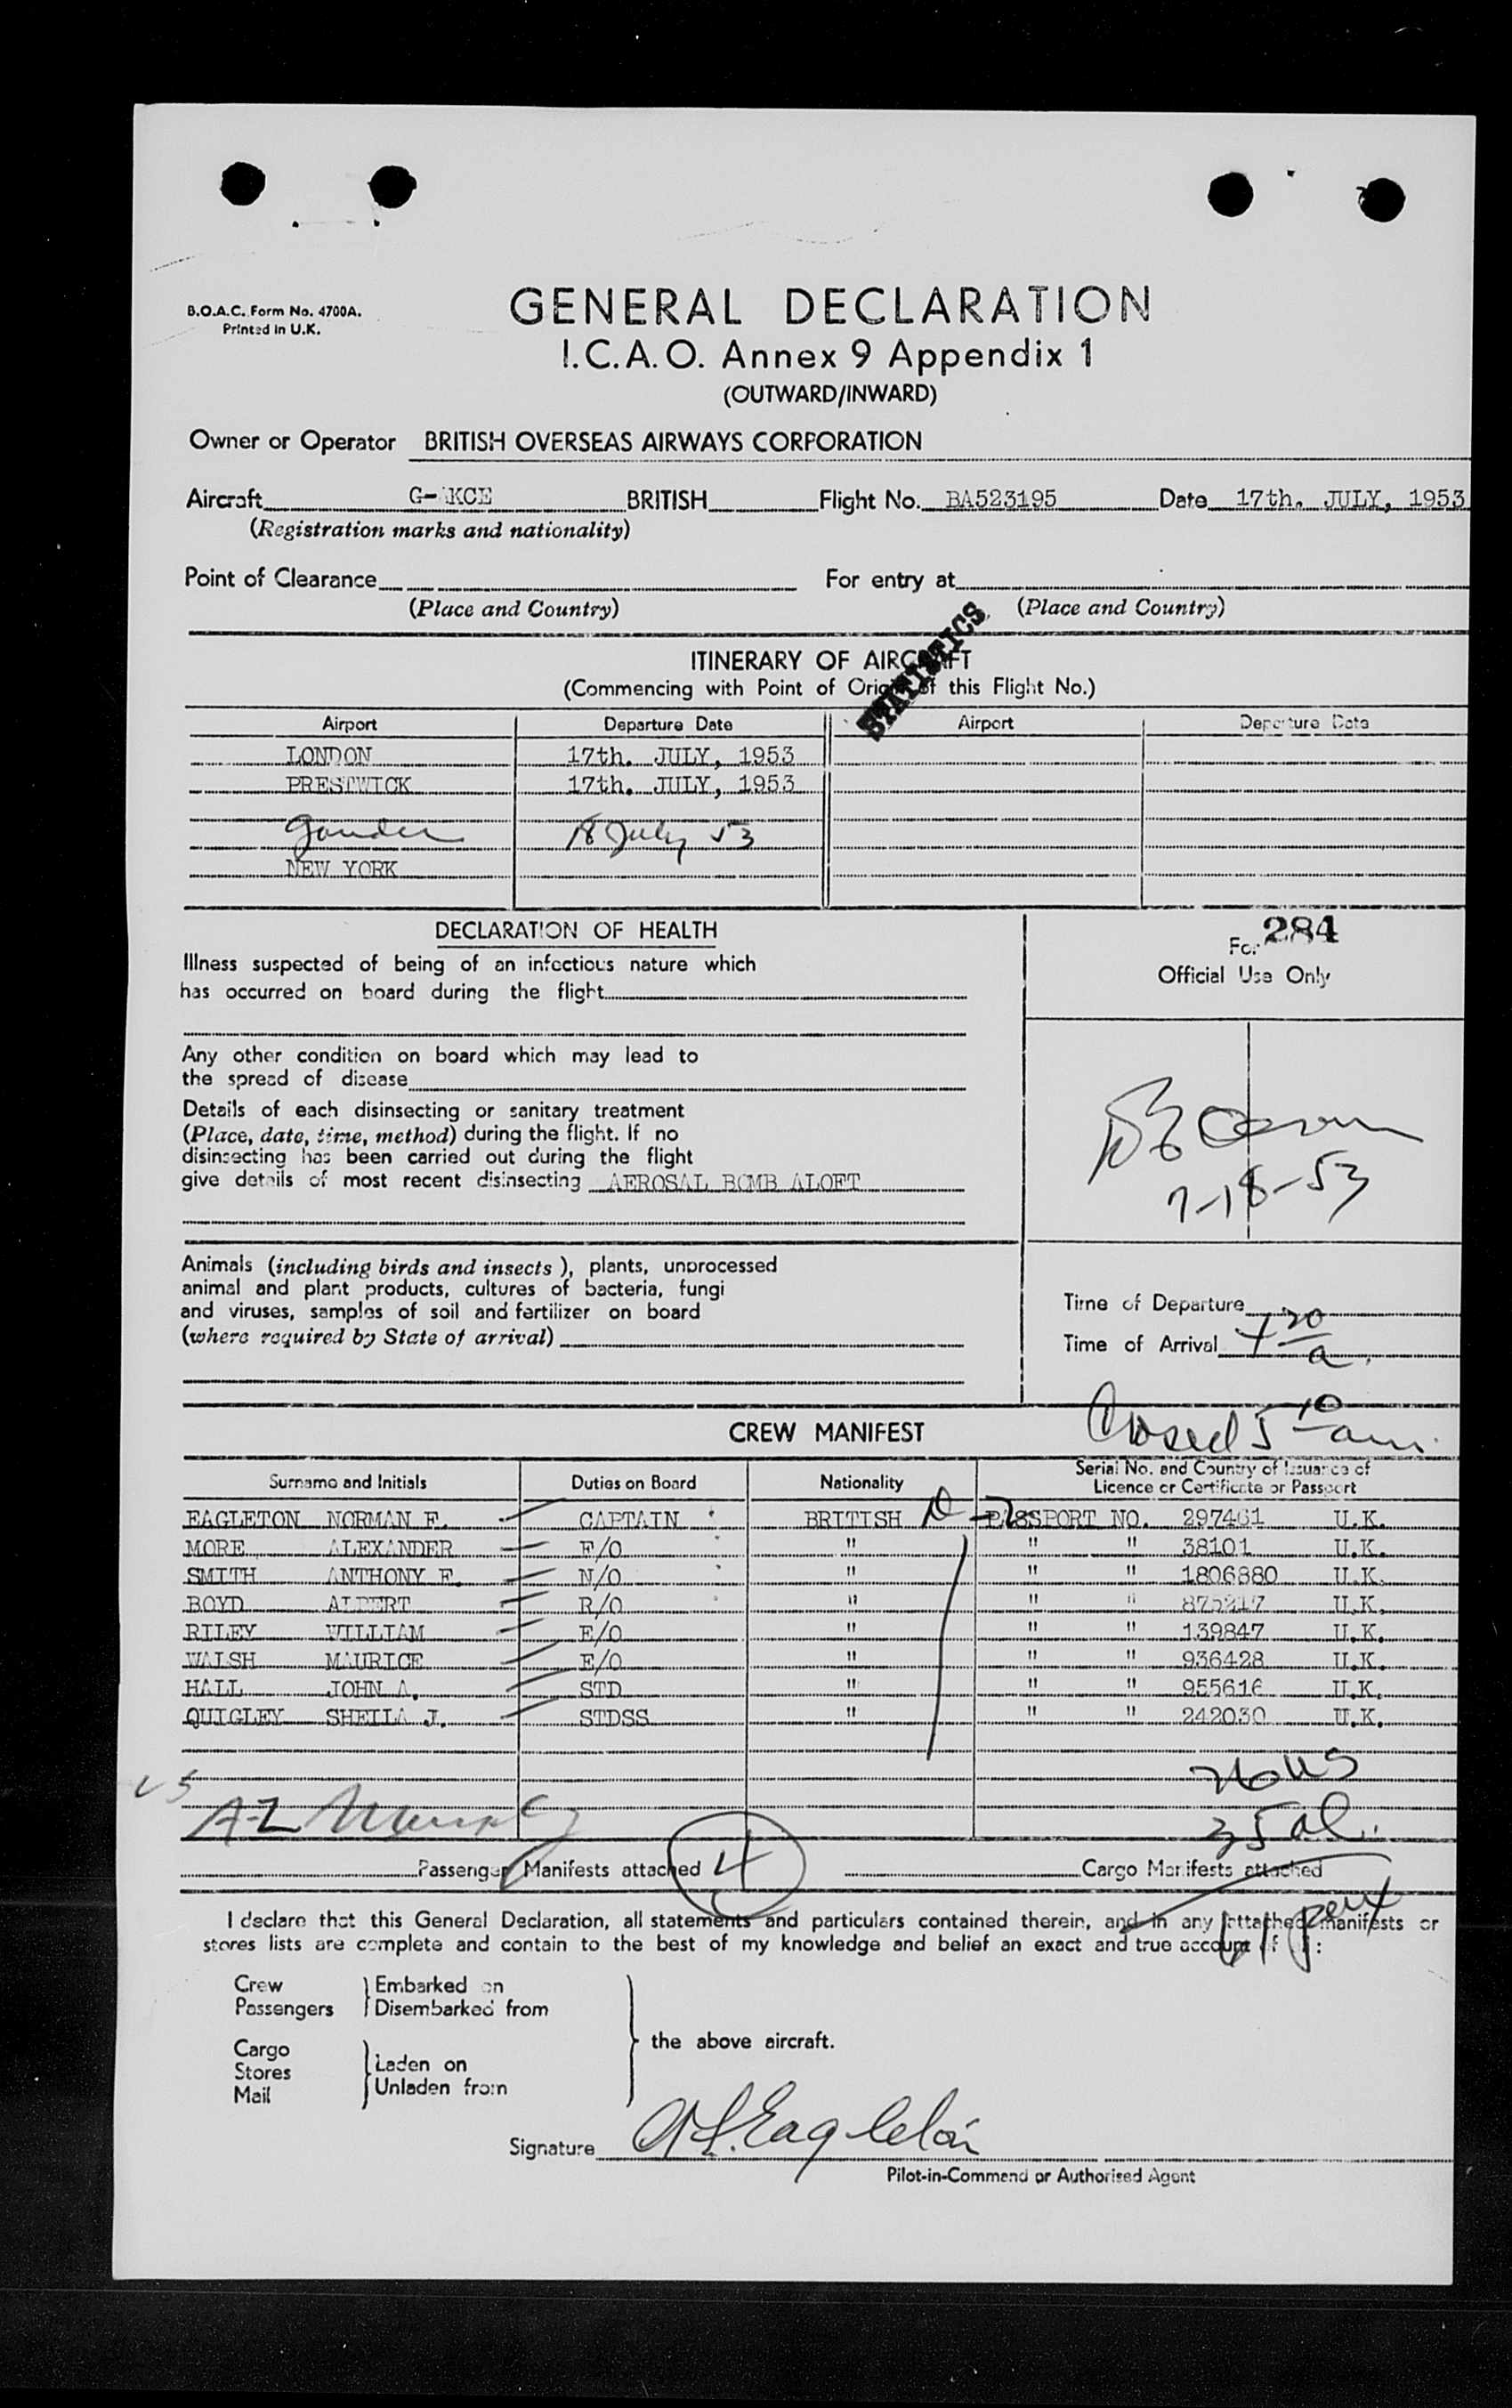 B.O.A.C. Form No. 4700A.
Printed in U.K.
GENERAL DECLARATION
I.C.A.O. Annex 9 Appendix 1
(OUTWARD/INWARD)
Owner or Operator BRITISH OVERSEAS AIRWAYS CORPORATION
Aircraft G- KCE BRITISH Flight No. BA523195 Date 17th. JULY, 1953
(Registration marks and nationality)
Point of Clearance For entry at
(Place and Country) (Place and Country)
STATISTICS
ITINERARY OF AIRCRAFT
(Commencing with Point of Origin of this Flight No.)
Airport Departure Date Airport Departure Date
LONDON 17th. JULY, 1953
PRESTWICK 17th. JULY, 1953
Gander 18 July 53
NEW YORK
DECLARATION OF HEALTH
Illness suspected of being of an infectious nature which
has occurred on board during the flight
Any other condition on board which may lead to
the spread of disease
Details of each disinsecting or sanitary treatment
(Place, date, time, method) during the flight. If no
disinsecting has been carried out during the flight
give details of most recent disinsecting AEROSAL BOMB ALOFT
Animals (including birds and insects), plants, unprocessed
animal and plant products, cultures of bacteria, fungi
and viruses, samples of soil and fertilizer on board
(where required by State of arrival)
284
For
Official Use Only
7-18-53
Time of Departure
Time of Arrival 20 a
Closed 5 10 am
CREW MANIFEST
Surname and Initials Duties on Board Nationality Serial No. and Country of Issuance of
Licence or Certificate or Passport
EAGLETON NORMAN F. CAPTAIN BRITISH PASSPORT NO. 297461 U.K.
MORE ALEXANDER F/O " " " 38101 U.K.
SMITH ANTHONY F. N/O " " " 1806880 U.K.
BOYD ALBERT R/O " " " 875217 U.K.
RILEY WILLIAM E/O " " " 139847 U.K.
WALSH MAURICE E/O " " " 936428 U.K.
HALL JOHN A. STD " " " 955616 U.K.
QUIGLEY SHEILA J. STDSS " " " 242030 U.K.
26 US
35 al.
61 pax
Passenger Manifests attached 4 Cargo Manifests attached
I declare that this General Declaration, all statements and particulars contained therein, and in any attached manifests or
stores lists are complete and contain to the best of my knowledge and belief an exact and true account of :
Crew
Passengers
Embarked on
Disembarked from
Cargo
Stores
Mail
Laden on
Unladen from
the above aircraft.
Signature N F. Eagleton
Pilot-in-Command or Authorised Agent